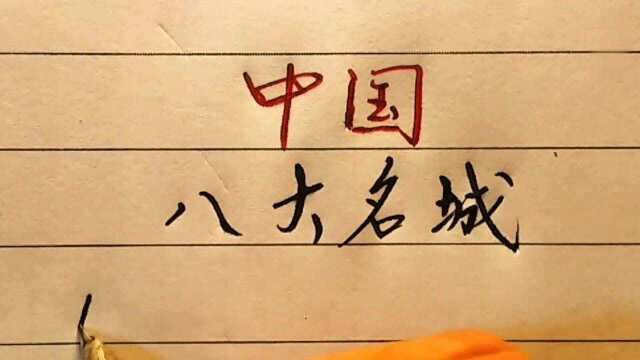 中国
八大名城